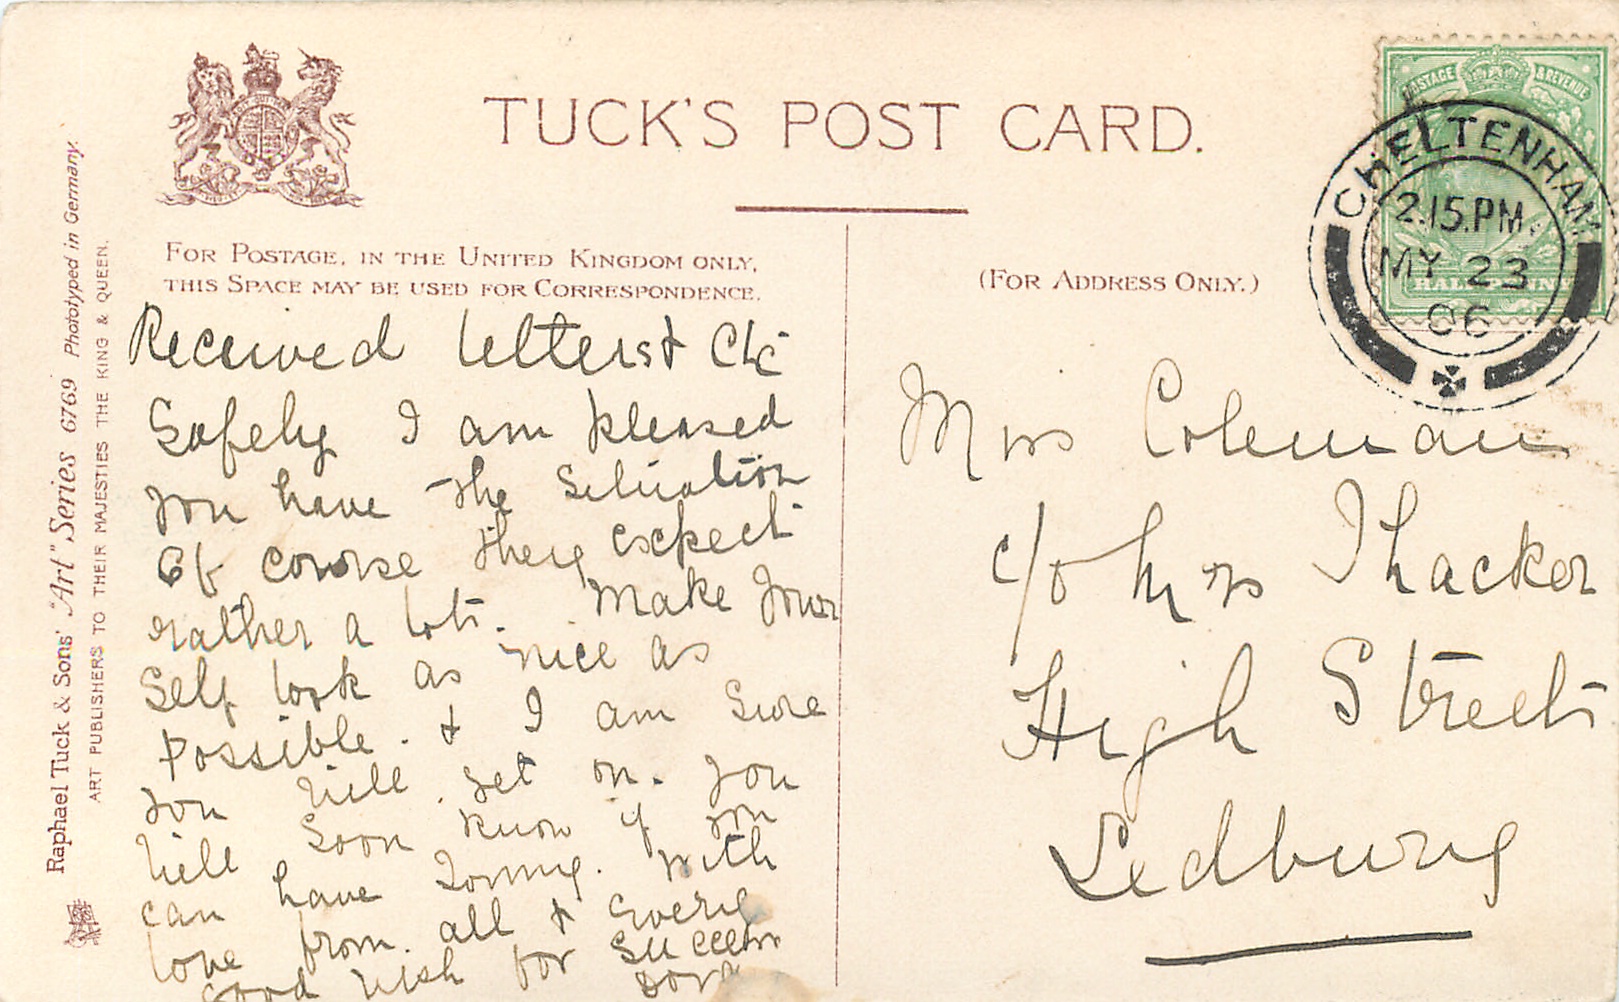 TUCK'S POST CARD.
FOR POSTAGE, IN THE UNITED KINGDOM ONLY,
THIS SPACE MAY BE USED FOR CORRESPONDENCE.
(FOR ADDRESS ONLY.)
POSTAGE & REVENUE
HALFPENNY
CHELTENHAM
2.15.PM.
MY 23
06
Raphael Tuck & Sons' "Art" Series 6769 Phototyped in Germany.
ART PUBLISHERS TO THEIR MAJESTIES THE KING & QUEEN.
Received letters &
Safely I am pleased
you have the Situation
Of course they expect
rather a lot. Make Your
Self look as nice as
possible. & I am Sure
you will get on. you
will Soon know if you
can have Tommy. With
love from all & Every
good wish for Success
Miss Coleman
c/o Mrs Thacker
High Street
Ledbury